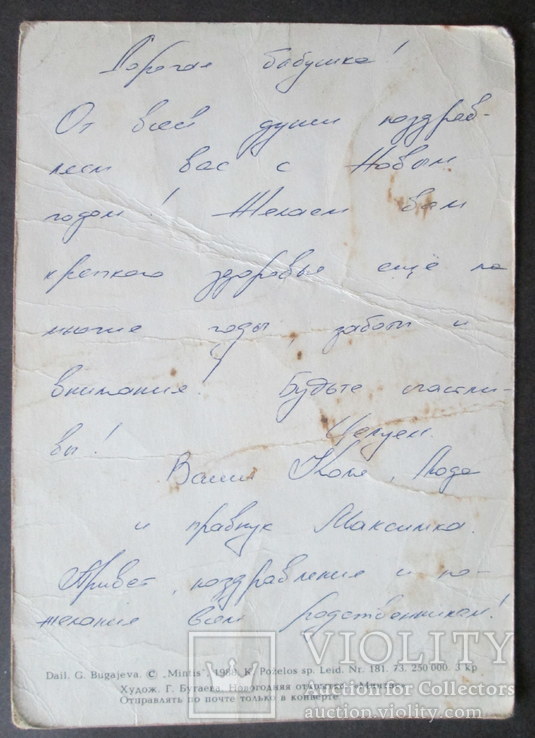 Дорогая бабушка!
От всей души поздрав-
ляем вас с Новым
годом! Желаем вам
крепкого здоровья ещё на
многие годы, заботы и
внимания. Будьте счастли-
вы! Целуем.
Ваши Коля, Люда
и правнук Максимка.
Привет, поздравления и по-
желания всем родственникам!
Dail. G. Bugajeva. © „Mintis", K. Poželos sp. Leid. Nr. 181. 73. 250 000. 3 kp
Худож. Г. Бугаева. Новогодняя
Отправлять по почте только в конверте
VIOLITY
Auction for Collectors
auction.violity.com